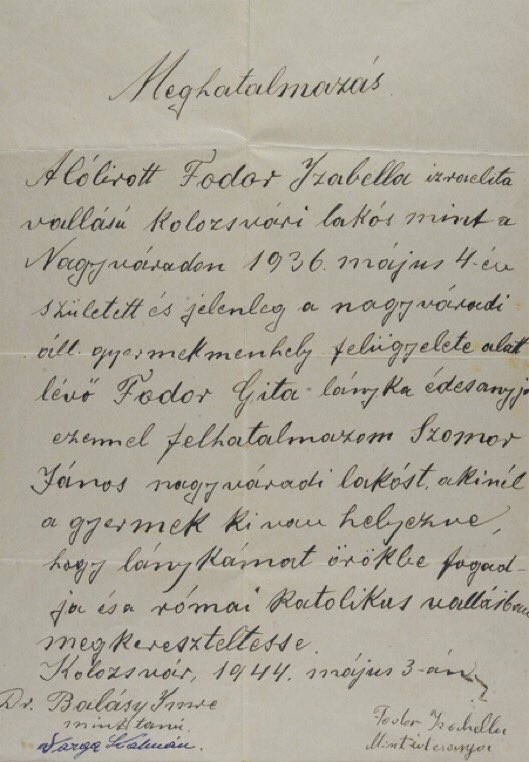 Meghatalmazás.
Alólirott Fodor Izabella izraelita
vallású kolozsvári lakós mint a
Nagyváradon 1936. május 4-én
született és jelenleg a nagyváradi
áll. gyermekmenhely felügyelete alat
lévő Fodor Gita lányka édesanyja
ezennel felhatalmazom Szomor
János nagyváradi lakóst, akinél
a gyermek ki van helyezve,
hogy lánykámat örökbe fogad-
ja és a római katolikus vallásban
megkereszteltesse.
Kolozsvár, 1944. május 3-án
Dr. Balásy Imre
mint tanú.
Varga Kálmán.
Fodor Izabella
Mint édesanya